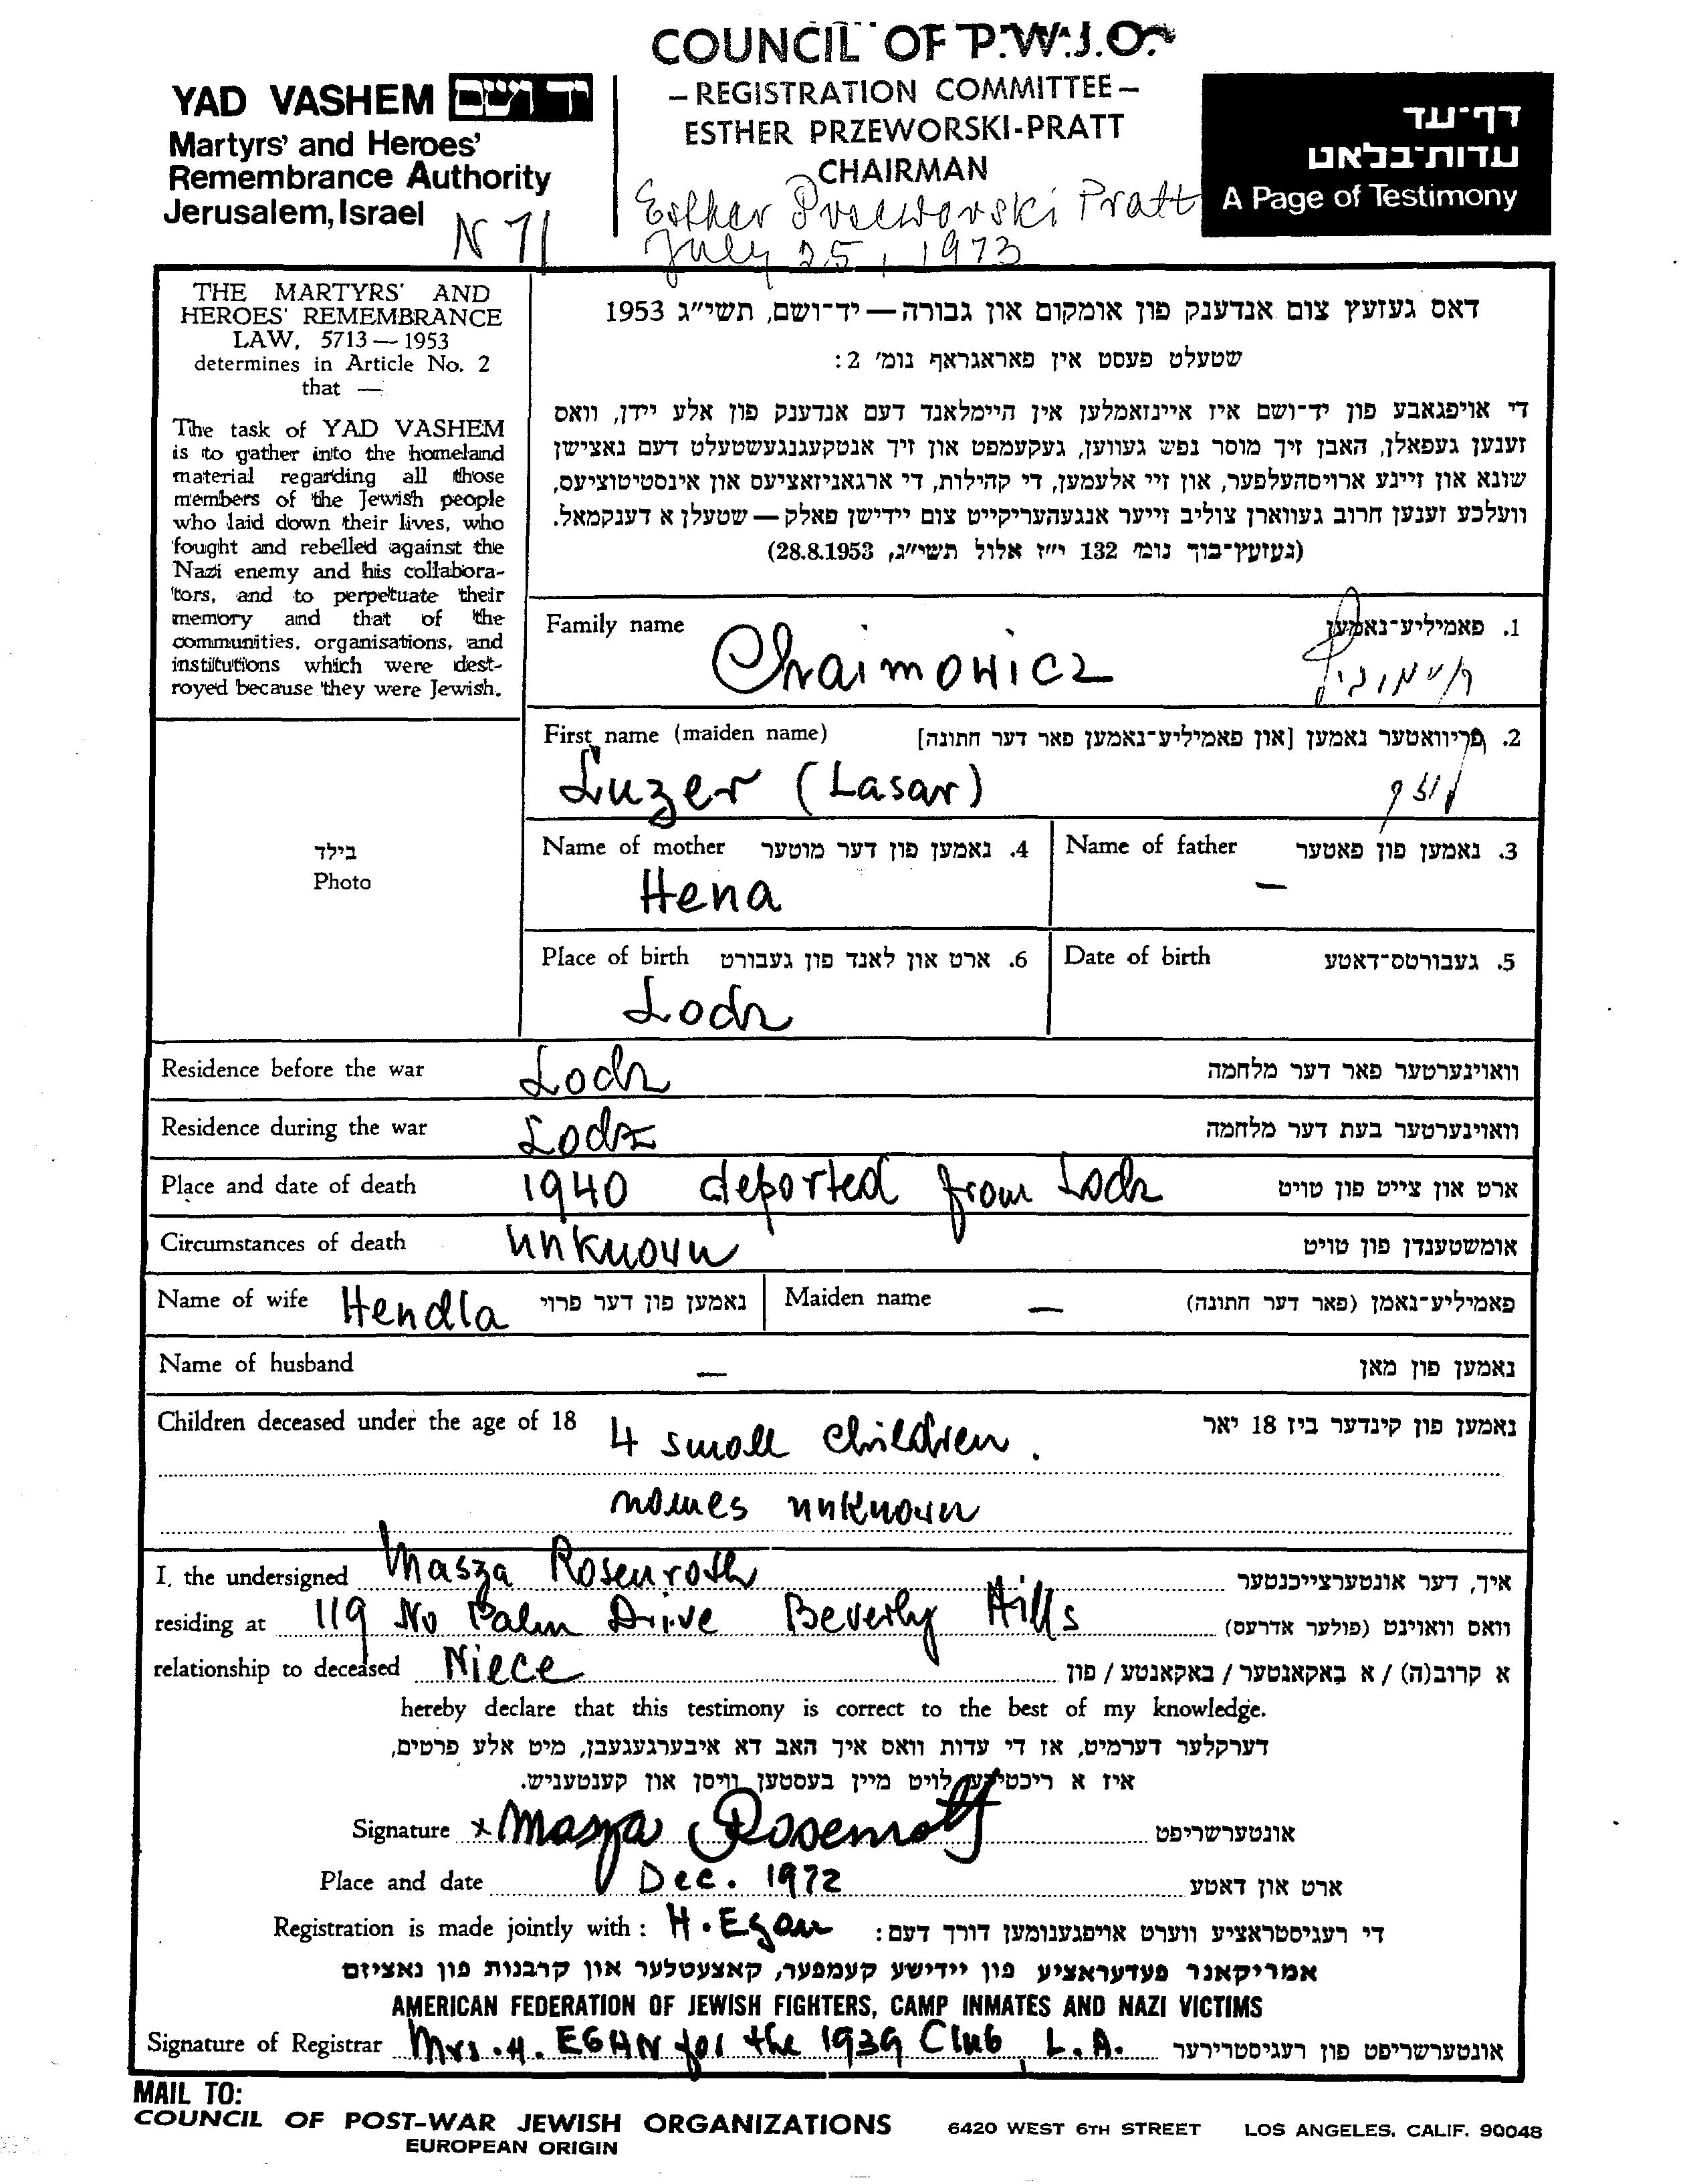 COUNCIL OF P.W.J.O.
— REGISTRATION COMMITTEE —
ESTHER PRZEWORSKI-PRATT
CHAIRMAN
Esther Przeworski Pratt
July 25, 1973
YAD VASHEM יד ושם
Martyrs' and Heroes'
Remembrance Authority
Jerusalem, Israel
N 71
דף-עד
עדות-בלאט
A Page of Testimony
THE MARTYRS' AND
HEROES' REMEMBRANCE
LAW, 5713 — 1953
determines in Article No. 2
that —
The task of YAD VASHEM
is to gather into the homeland
material regarding all those
members of the Jewish people
who laid down their lives, who
fought and rebelled against the
Nazi enemy and his collabora-
tors, and to perpetuate their
memory and that of the
communities, organisations, and
institutions which were dest-
royed because they were Jewish.
דאס געזעץ צום אנדענק פון אומקום און גבורה — יד-ושם, תשי"ג 1953
שטעלט פעסט אין פאראגראף נומ' 2:
די אויפגאבע פון יד-ושם איז איינזאמלען אין היימלאנד דעם אנדענק פון אלע יידן, וואס
זענען געפאלן, האבן זיך מוסר נפש געווען, געקעמפט און זיך אנטקעגנגעשטעלט דעם נאצישן
שונא און זיינע ארויסהעלפער, און זיי אלעמען, די קהילות, די ארגאניזאציעס און אינסטיטוציעס,
וועלכע זענען חרוב געווארן צוליב זייער אנגעהעריקייט צום יידישן פאלק — שטעלן א דענקמאל.
(געזעץ-בוך נומ' 132 י"ז אלול תשי"ג, 28.8.1953)
Family name 1. פאמיליע-נאמען
Chaimowicz
First name (maiden name) 2. פריוואטער נאמען [און פאמיליע-נאמען פאר דער חתונה]
Luzer (Lasar)
בילד
Photo
Name of mother 4. נאמען פון דער מוטער
Hena
Name of father 3. נאמען פון פאטער
—
Place of birth 6. ארט און לאנד פון געבורט
Lodz
Date of birth 5. געבורטס-דאטע
Residence before the war Lodz וואוינערטער פאר דער מלחמה
Residence during the war Lodz וואוינערטער בעת דער מלחמה
Place and date of death 1940 deported from Lodz ארט און צייט פון טויט
Circumstances of death unknown אומשטענדן פון טויט
Name of wife Hendla נאמען פון דער פרוי Maiden name — פאמיליע-נאמן (פאר דער חתונה)
Name of husband — נאמען פון מאן
Children deceased under the age of 18 4 small children. נאמען פון קינדער ביז 18 יאר
names unknown
I, the undersigned Masza Rosenroth איך, דער אונטערצייכנטער
residing at 119 No Palm Drive Beverly Hills וואס וואוינט (פולער אדרעס)
relationship to deceased Niece א קרוב(ה) / א באקאנטער / באקאנטע / פון
hereby declare that this testimony is correct to the best of my knowledge.
דערקלער דערמיט, אז די עדות וואס איך האב דא איבערגעגעבן, מיט אלע פרטים,
איז א ריכטיגע לויט מיין בעסטען וויסן און קענטעניש.
Signature x Masza Rosenroth אונטערשריפט
Place and date Dec. 1972 ארט און דאטע
Registration is made jointly with: H. Egan די רעגיסטראציע ווערט אויפגענומען דורך דעם:
אמריקאנר פעדעראציע פון יידישע קעמפער, קאצעטלער און קרבנות פון נאציזם
AMERICAN FEDERATION OF JEWISH FIGHTERS, CAMP INMATES AND NAZI VICTIMS
Signature of Registrar Mrs. H. EGAN for the 1939 Club, L.A. אונטערשריפט פון רעגיסטרירער
MAIL TO:
COUNCIL OF POST-WAR JEWISH ORGANIZATIONS 6420 WEST 6TH STREET LOS ANGELES, CALIF. 90048
EUROPEAN ORIGIN